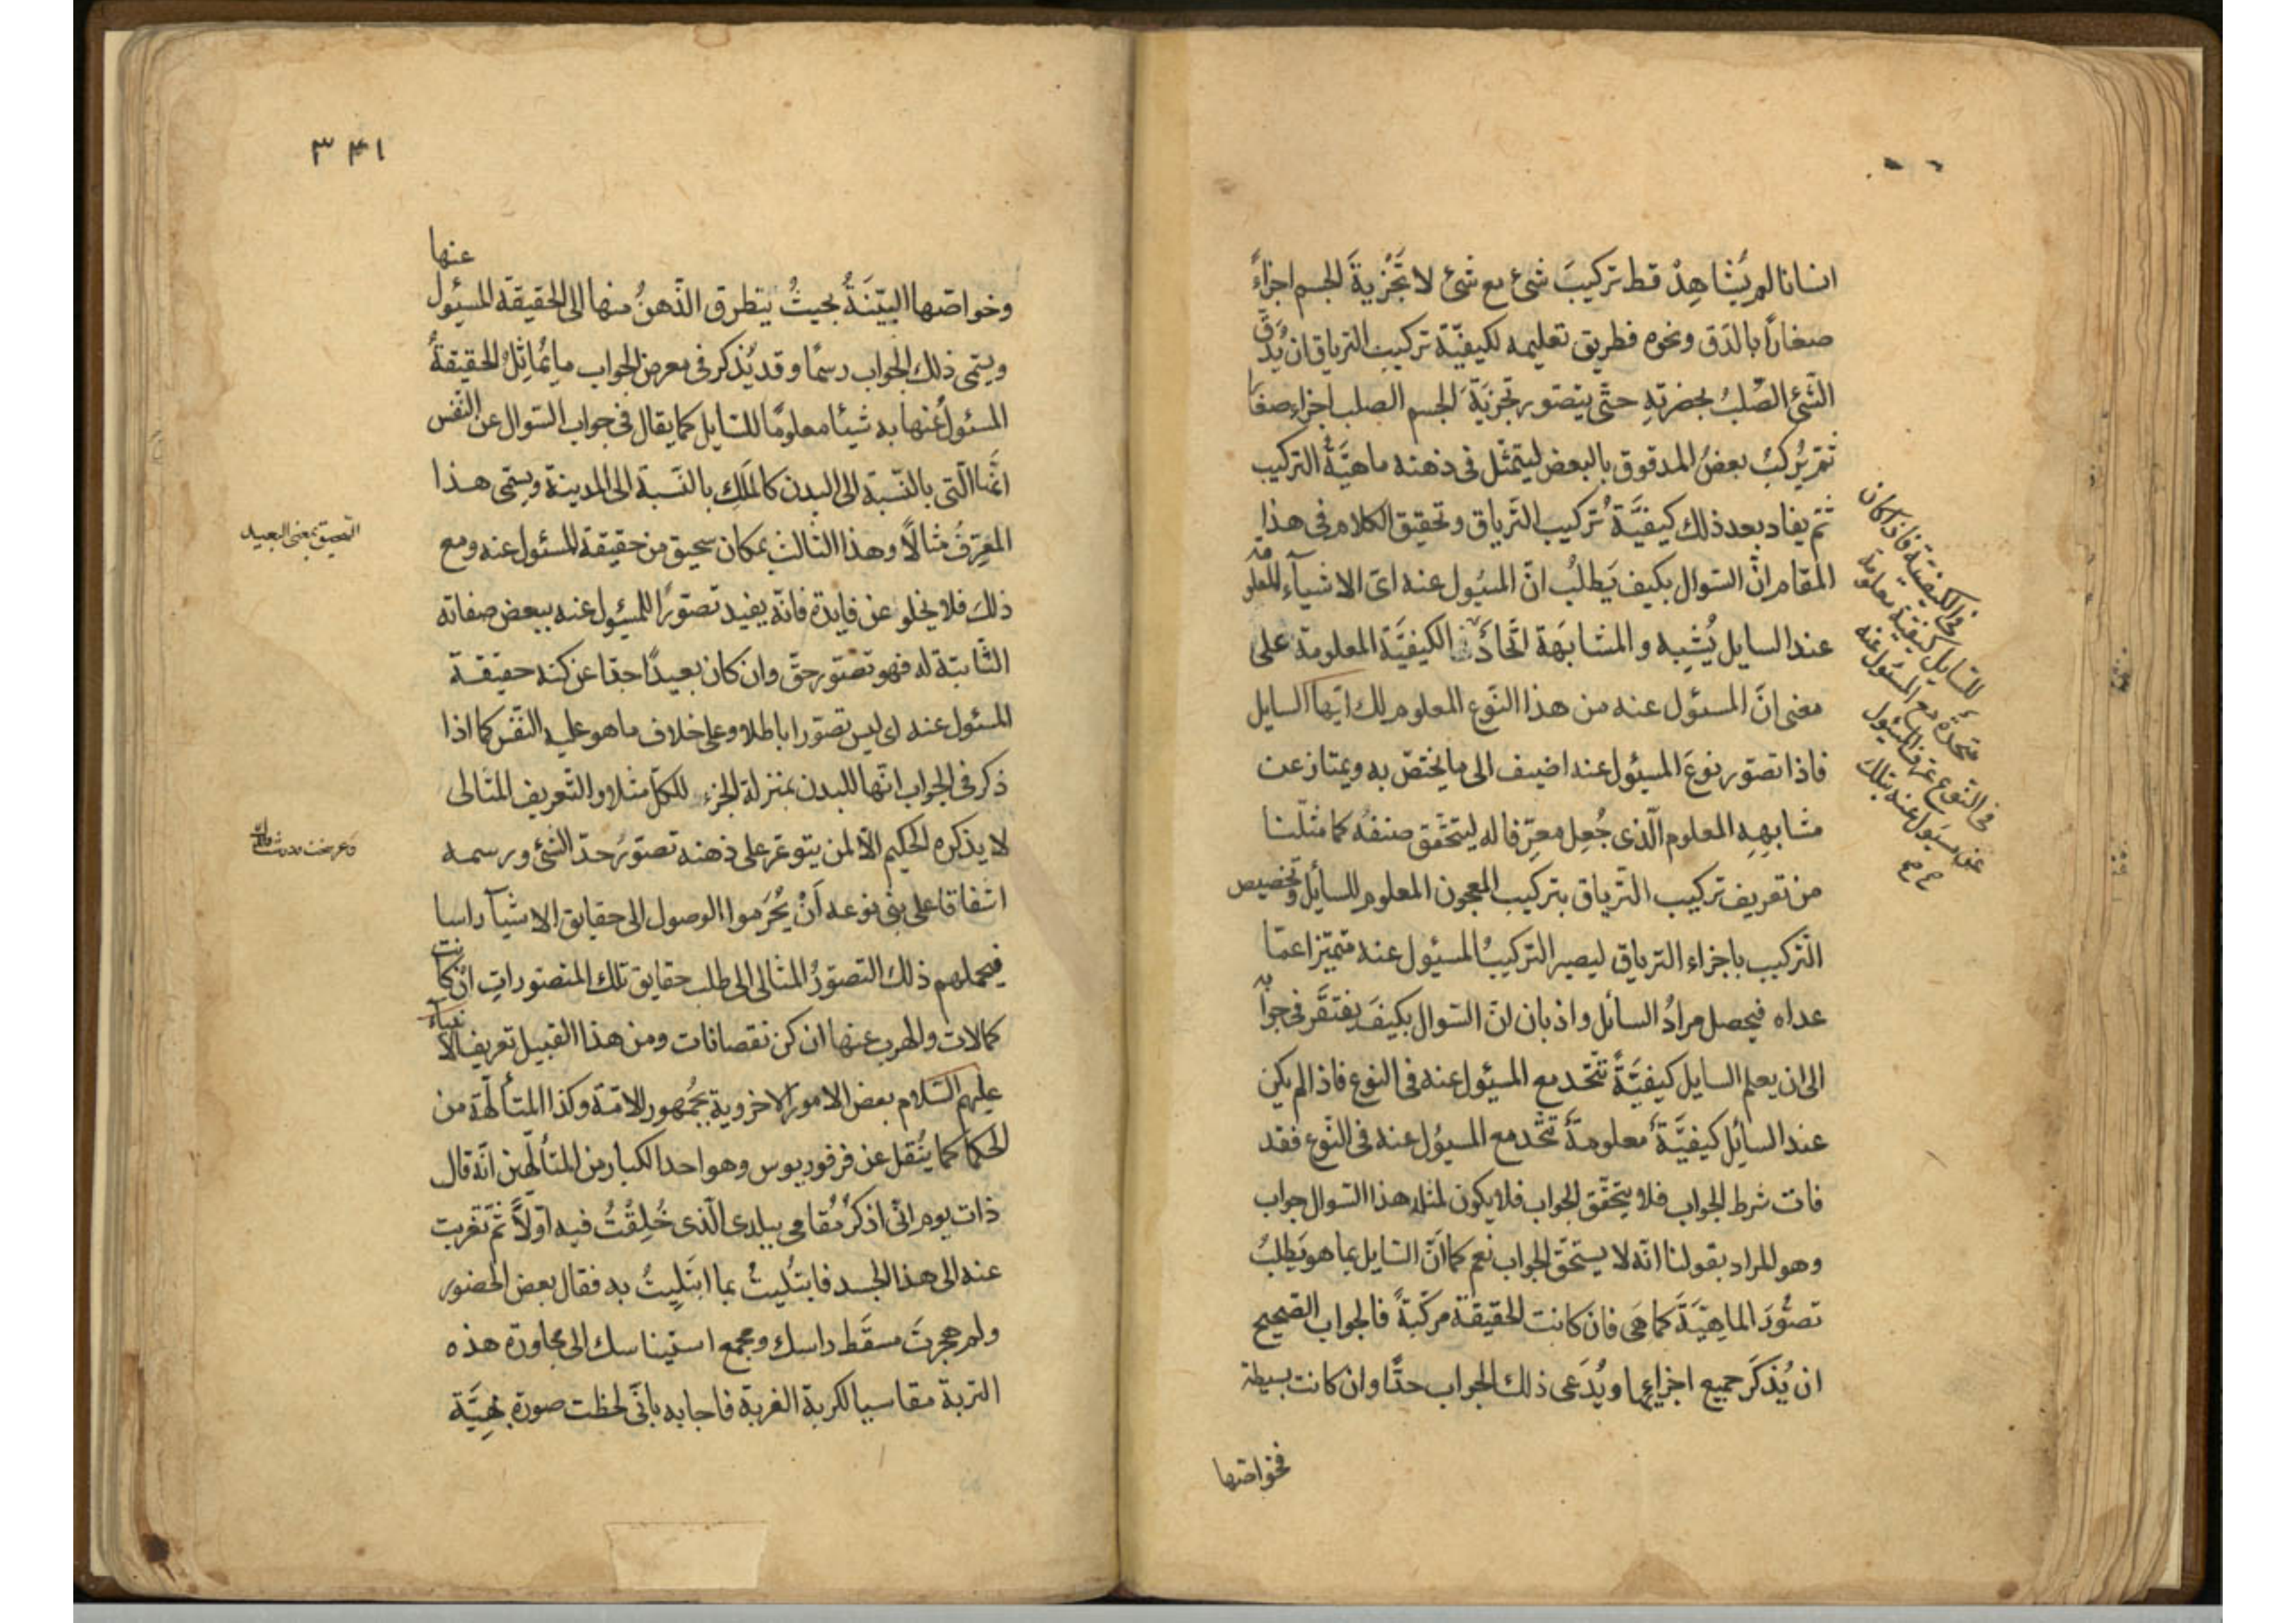 انسانا لم يُشاهِدْ قط تركيبَ شئ مع شئ لا تَجْزيةَ الجسم اجزاءً
صغارًا بالدَق ونحوه فطريق تعليمه لكيفيّة تركيب الترياق ان يُدَقّ
الشّئ الصُلبُ بحضرته حتّى يتصور تجزيَةَ الجسم الصلب اجزاء صغارا
ثمّ يُركبُ بعضُ المدقوق بالبعض ليتمثل فى ذهنه ماهيَّةُ التركيب
ثمّ يفاد بعد ذلك كيفيَّةُ تركيب التّرياق وتحقيق الكلام فى هذا
المقام انّ السّوال بكيف يَطلبُ انّ المسئول عنه اىّ الاشيآء المعلومة
عند السايل يُشبِه والمشابَهة اتّحادٌ فى الكيفيَّة المعلومة على
معنى انّ المسئول عنه من هذا النّوع المعلوم لك ايّها السايل
فاذا تصوّر نوعَ المسئول عنه اضيف الى ما يختصّ به ويمتاز عن
مشابهِهِ المعلوم الّذى جُعِل معرِّفا له ليتحقق صنفُه كما مثّلنا
من تعريف تركيب التّرياق بتركيب المعجون المعلوم للسائل وتخصيص
التّركيب باجزاء الترياق ليصير التركيبُ المسئول عنه متميّزا عمّا
عداه فيحصل مرادُ السائل واذ بان انّ السّوال بكيفَ يفتقَر فى جوابه
الى ان يعلم السايل كيفيَّةً تتّحد مع المسئول عنه فى النوع فاذا لم يكن
عند السائل كيفيَّةٌ معلومةٌ تتّحد مع المسئول عنه فى النّوع فقد
فات شرط الجواب فلا يتحقّق الجواب فلا يكون لمثله هذا السّوال جواب
وهو المراد بقولنا انّه لا يستحقّ الجواب نعم كما انّ السّايل بما هو يَطلبُ
تصوُّرَ الماهِيَّةَ كما هَى فان كانت الحقيقة مركّبةً فالجواب الصّحيح
ان يُذكَرَ جميع اجزايها ويُدَعى ذلك الجواب حدًّا وان كانت بسيطة
فخواصّها
فى الكيفيّة فاذا كان
للسّايل كيفيّة معلومة
متّحدة مع المسئول عنه
فى النّوع عرّفنا المسئول
عن مسئول عنه بتلك
صح
٣٤١
وخواصّها البيّنَةُ بحيثُ يتطرق الذّهنُ منها الى الحقيقة المسئول عنها
ويسمّى ذلك الجواب رسمًا وقد يُذكر فى معرض الجواب ما يُماثِلُ الحقيقةُ
المسئولُ عنها به شيئا معلومًا للسّايل كما يقال فى جواب السّوال عن النّفس
انّها الّتى بالنّسبة الى البدن كالمَلِك بالنّسبة الى المدينة ويسمّى هذا
المعرِّفُ مثالًا وهذا الثالث بمكان سحيق من حقيقة المسئول عنه ومع
ذلك فلا يخلو عن فايدة فانّه يفيد تصوّرًا للمسئول عنه ببعض صفاته
الثّابتة له فهو تصوّر حقّ وان كان بعيدًا جدّا عن كنه حقيقة
المسئول عنه اى ليس تصوّرا باطلا وعلى خلاف ما هو عليه النفّس كما اذا
ذكر فى الجواب انّها للبدن بمنزلة الجزء للكلّ مثلا والتّعريف المثالى
لا يذكره الحكيم الّا لمن يتوعّر على ذهنه تصوّرُ حدّ الشّئ ورسمه
اشفاقا على بنى نوعه اَنْ يُحْرَموا الوصول الى حقايق الاشيآء راسا
فيحملهم ذلك التصوّرُ المثالى الى طلب حقايق تلك المتصوراتِ ان كانت
كمالات والهرب عنها ان كنّ نقصانات ومن هذا القبيل تعريف الانبيآء
عليهم السّلام بعض الامور الاخروية لجُمهور الامّة وكذا المتألّهة من
الحكما كما يُنقل عن فرفوريوس وهو احد الكبار من المتألّهين انّه قال
ذات يوم انّى اذكر مُقامى ببلدى الّذى خُلِقْتُ فيه اوّلاً ثمّ تغربت
عنه الى هذا الجسد فابتُليتُ بما ابتَليتُ به فقال بعض الحضور
ولم هجرتَ مسقَط راسك ومجمع استيناسك الى مجاورة هذه
التربة مقاسيا لكربة الغربة فاجابه بانّى لحظت صورة بهيَّة
السحيق بمعنى البعيد